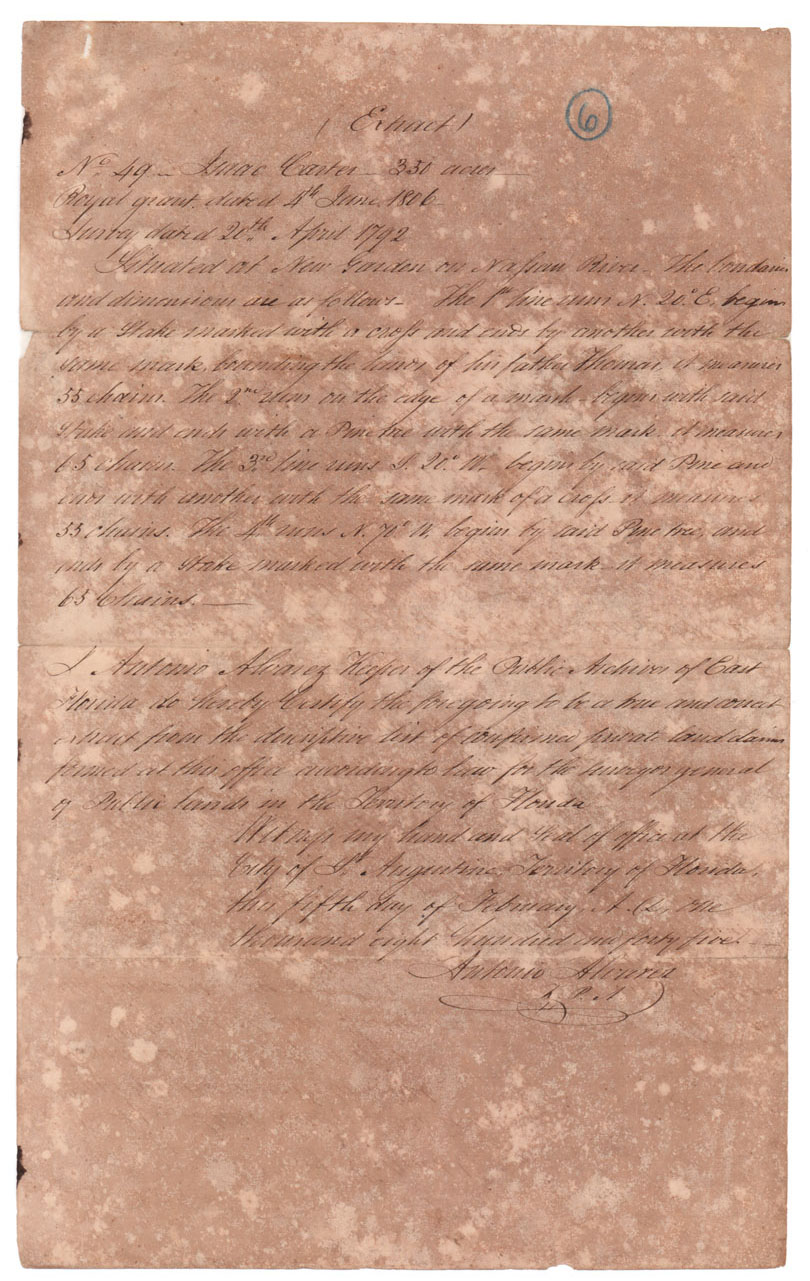 (Extract)
6
No. 49 - Isaac Carter - 350 acres
Royal grant, dated 4th June 1806
Survey dated 20th April 1792
Situated at New Garden on Nassau River. The
and dimensions are as follows - The 1st line runs N. 20° E. begins
by a Stake marked with a cross and ends by another with the
same mark, bounding the lands of his father Thomas, it measures
55 chains. The 2nd runs on the edge of a marsh - begins with said
Stake and ends with a Pine tree with the same mark - it measures
65 chains. The 3rd line runs S. 20° W. begins by said Pine and
ends with another with the same mark of a cross it measures
55 chains. The 4th runs N. 70° W. begins by said Pine tree, and
ends by a Stake marked with the same mark - it measures
65 Chains. —
I Antonio Alvarez Keeper of the Public Archives of East
Florida do hereby Certify the foregoing to be a true and correct
extract from the descriptive list of confirmed private land claims
formed at this office according to law for the surveyor general
of Public lands in the Territory of Florida
Witness my hand and Seal of office at the
City of St. Augustine, Territory of Florida,
this fifth day of February, A.D. one
thousand eight hundred and forty five. —
Antonio Alvarez
K. P. A.